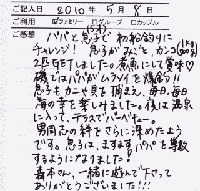 ご記入日 2010年5月8日
ご利用 ☑ファミリー □グループ □カップル
ご感想 パパと息子(5才)で初船釣りに
チャレンジ! 息子がみごと、カンコ(1kg30cm)を
2匹GETしました。煮魚にして賞味♡
磯ではパパがムラソイを爆釣!!
息子もカニや貝を捕まえ、毎日、毎日
海の幸を楽しみました。後は温泉
に入って、テラスでバーベキュー。
男同志の絆をさらに深めたよう
です。息子は、ますます、パパを尊敬
するようになりました!
森本さん、一緒に遊んで下さって
ありがとうございました!!!